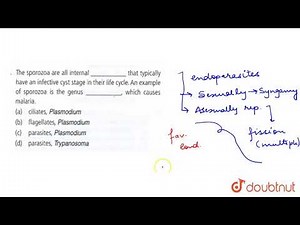 The sporozoa are all internal ____________ that typically
have an infective cyst stage in their life cycle. An example
of sporozoa is the genus ____________, which causes
malaria.
(a) ciliates, Plasmodium
(b) flagellates, Plasmodium
(c) parasites, Plasmodium
(d) parasites, Trypanosoma
endoparasites
Sexually → Syngamy
Asexually rep.
fav.
cond
fission
(multiple)
doubtnut